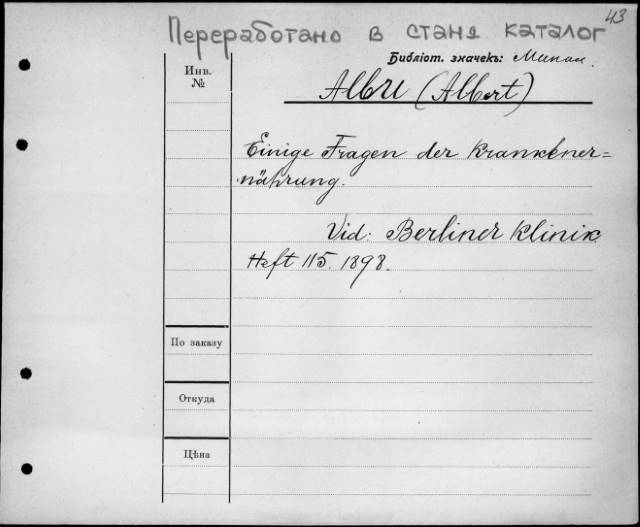 43
Переработано в станд каталог
Библіот. значекъ:
Инв.
№
Albu (Albert)
Einige Fragen der Krankener=
nährung.
Vid: Berliner Klinik
Heft 115. 1898.
По заказу
Откуда
Цѣна